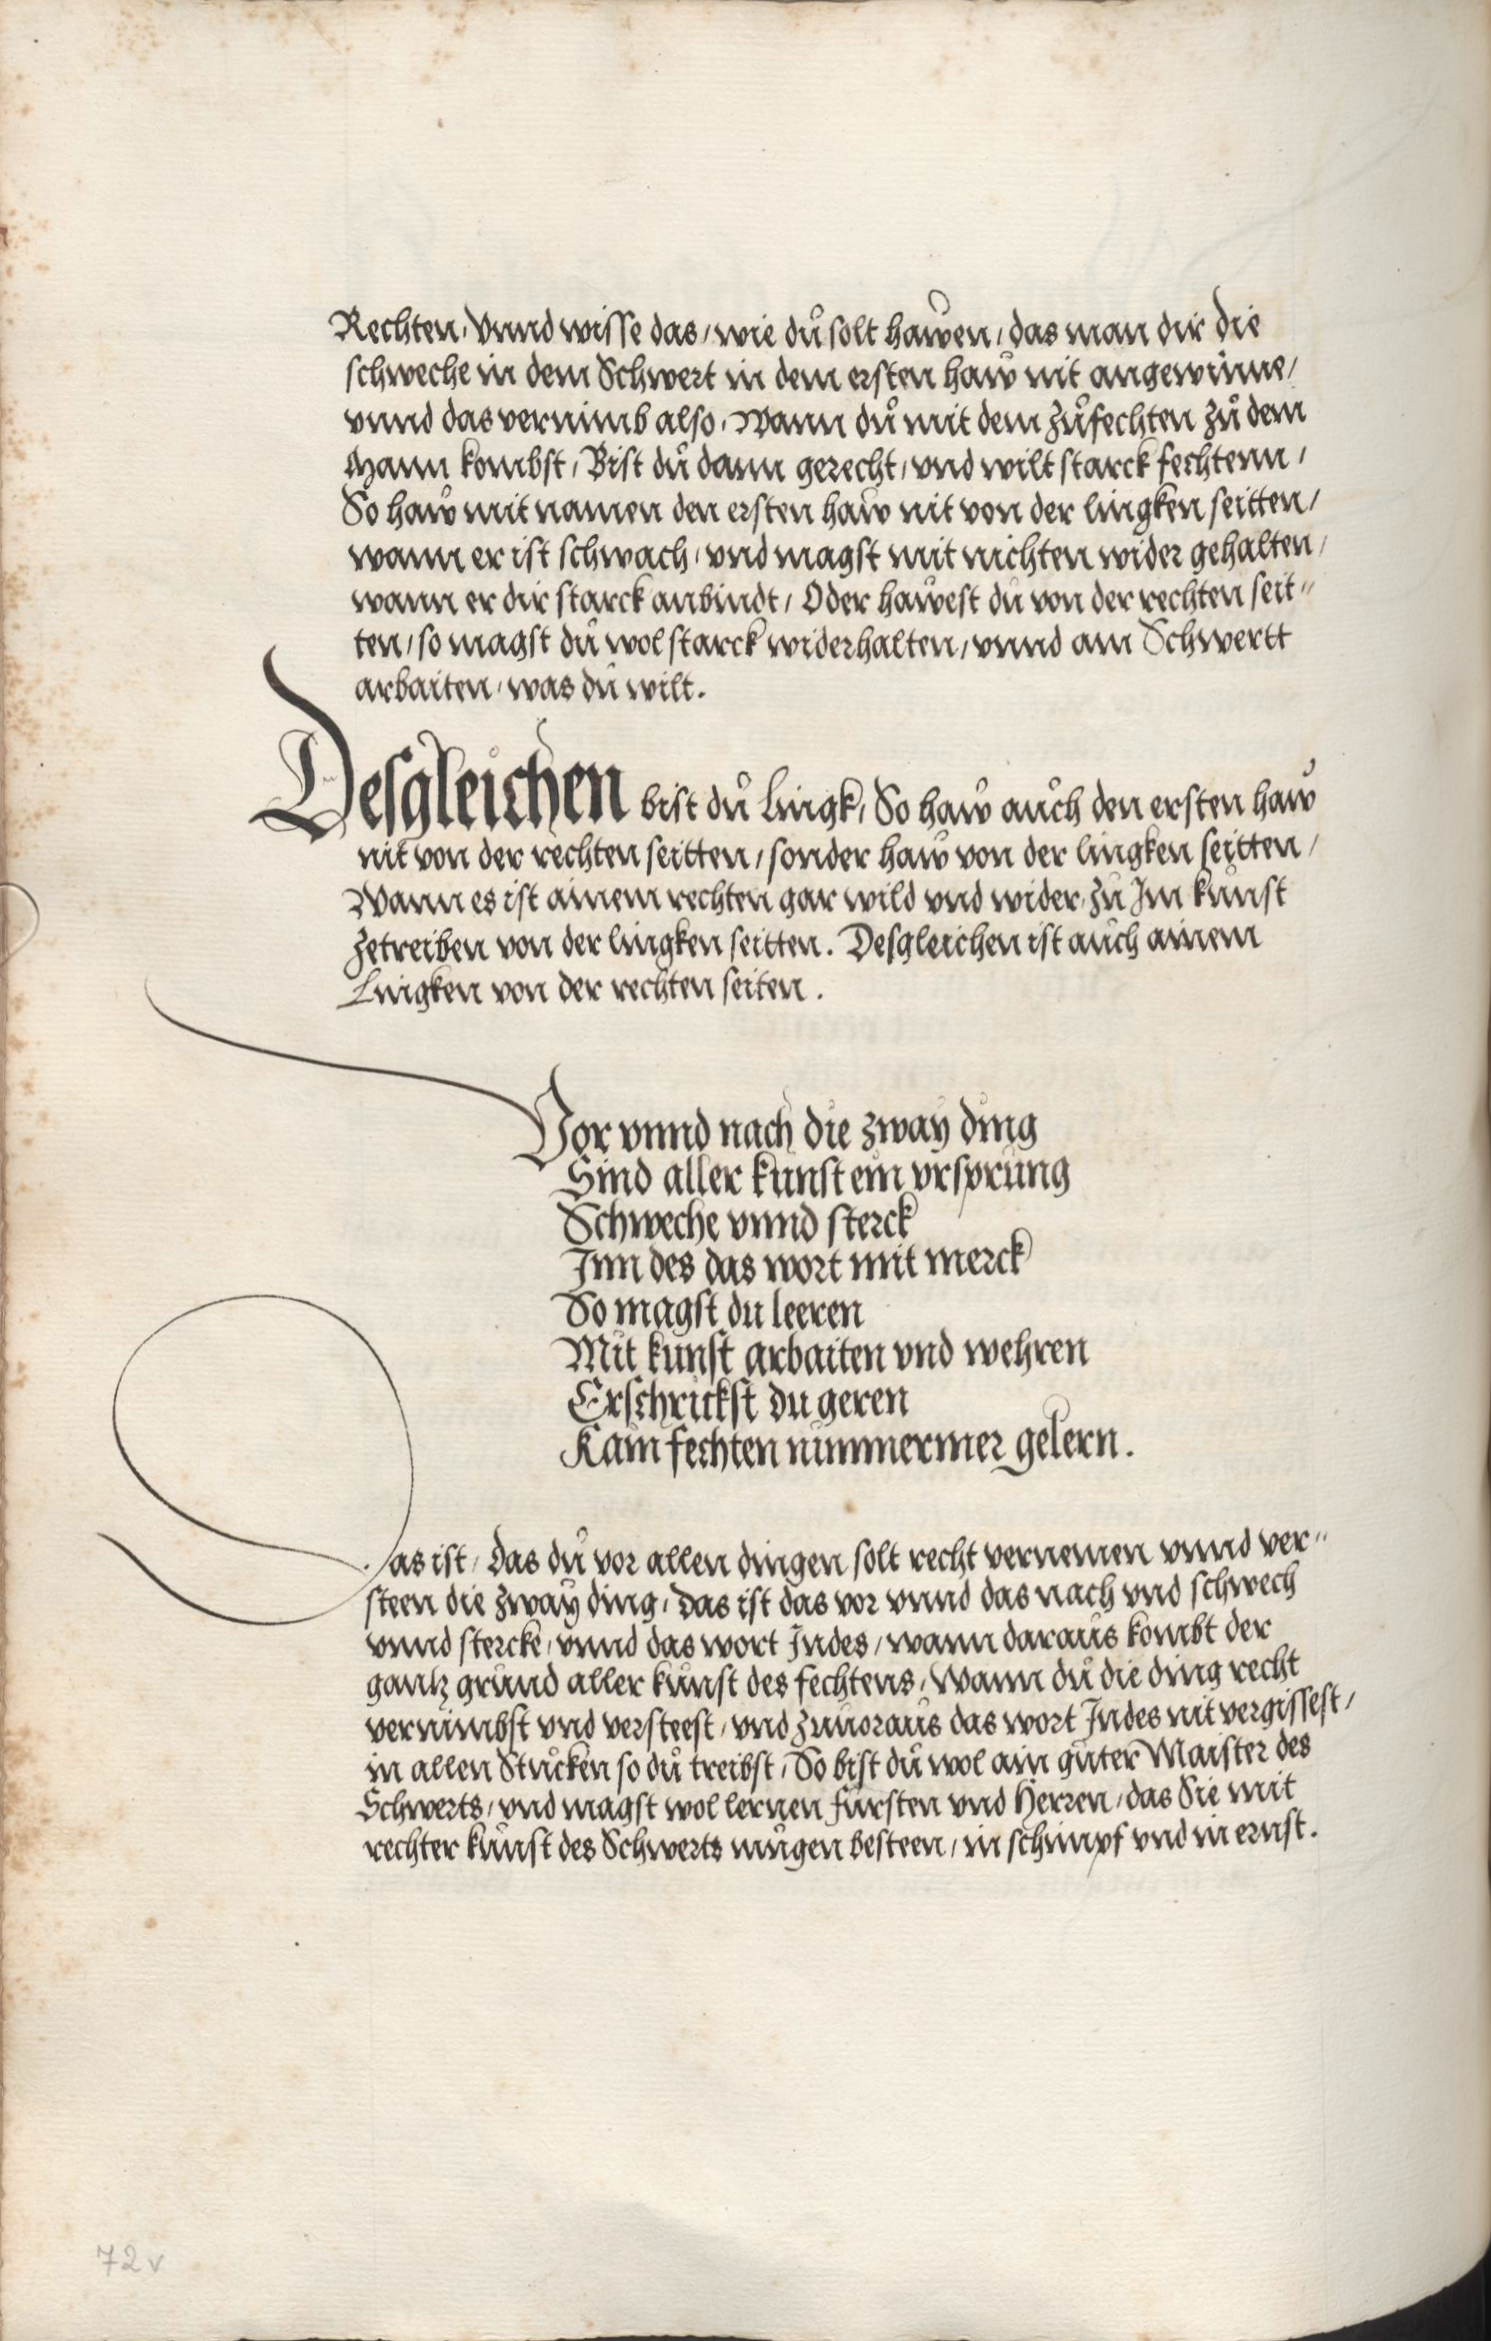 Rechten, Vnnd wisse das, wie dů solt hawen, das man dir die
schweche in dem Schwert in dem ersten haw nit angewinne,
vnnd das vernimb also, Wann dů mit dem zůfechten zů dem
Mann kombst, Bist dů dann gerecht, vnd wilt starck fechtenn,
So haw mit namen den ersten haw nit von der lingken seitten,
wann er ist schwach, vnd magst mit nichten wider gehalten,
wann er dir starck anbindt, Oder hawest dů von der rechten seit=
ten, so magst dů wol starck widerhalten, vnnd am Schwertt
arbaiten, was dů wilt.
Desgleichen bist dů Lingk, So haw aůch den ersten haw
nit von der rechten seitten, sonder haw von der lingken seitten,
Wann es ist ainem rechten gar wild vnd wider, zů Im kůnst
zetreiben von der lingken seitten. Desgleichen ist aůch ainem
Lingken von der rechten seiten.
Vor vnnd nach die zway ding
Sind aller kunst ein vrsprung
Schweche vnnd sterck
Inn des das wort mit merck
So magst du leeren
Mit kunst arbaiten vnd wehren
Erschrickst du geren
Kain fechten nimmermer gelern.
as ist, Das dů vor allen dingen solt recht vernemen vnnd ver=
steen die zway ding, das ist das vor vnnd das nach vnd schwech
vnnd stercke, vnnd das wort Indes, wann daraůs kombt der
gantz grůnd aller kůnst des fechtens, Wann dů die ding recht
vernimbst vnd versteest, vnd zuuoraůs das wort Indes nit vergissest,
in allen Stůcken so dů treibst, So bist dů wol ain gůter Maister des
Schwerts, vnd magst wol lernen fürsten vnd Herren, das Sie mit
rechter kůnst des Schwerts mügen besteen, in schimpf vnd in ernst.
72v